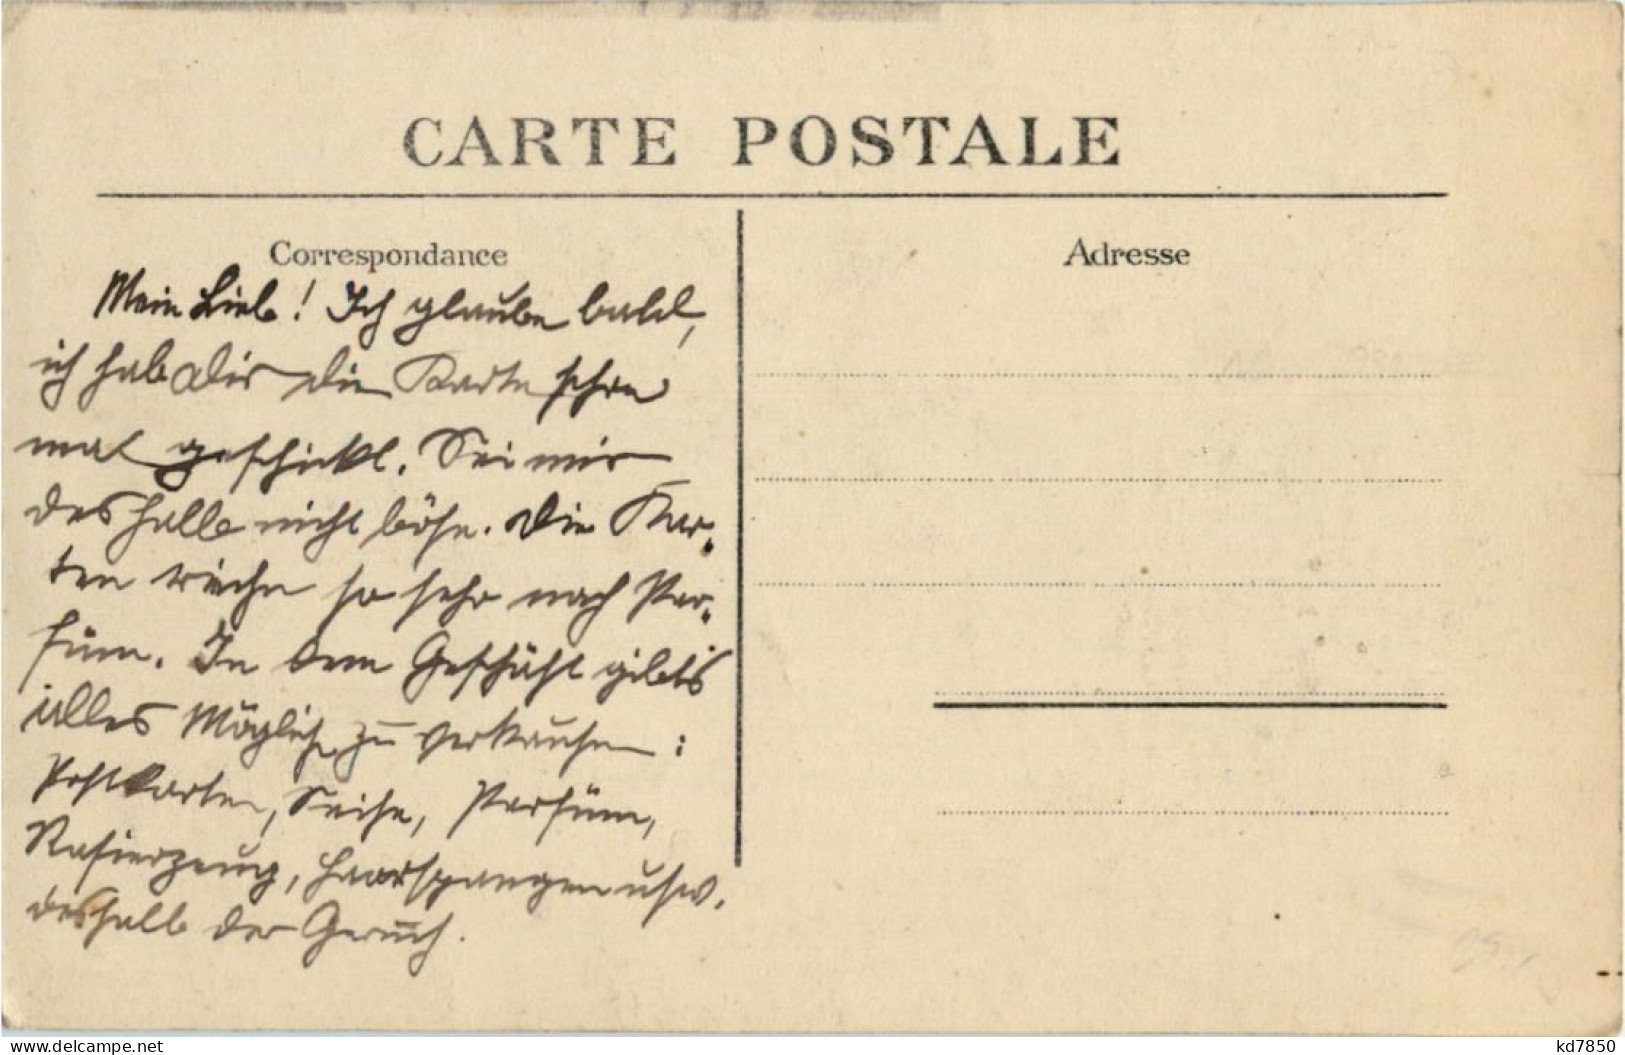 CARTE POSTALE
Correspondance
Adresse
Mein Lieb! Ich glaube bald,
ich hab Dir die Karte schon
mal geschickt. Sei mir
deshalb nicht böse. Die Kar-
ten riechen so sehr nach Par-
füm. In dem Geschäft gibts
alles Mögliche zu verkaufen:
Postkarten, Seife, Parfüm,
Rasierzeug, Haarspangen usw.
deshalb der Geruch.
www.delcampe.net
kd7850